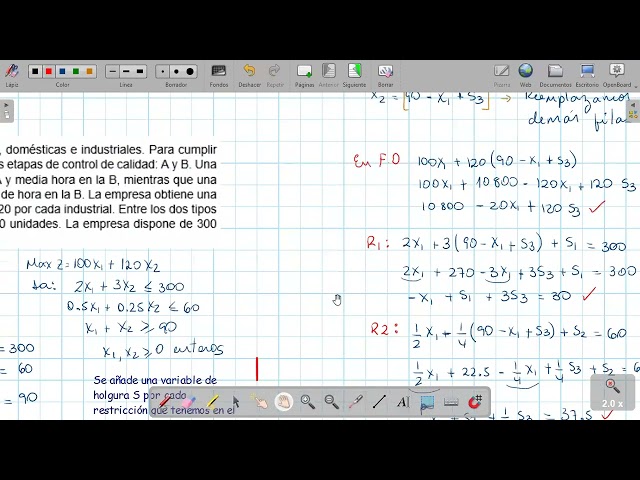 Lápiz
Color
Línea
Borrador
Fondos
Deshacer
Rehacer
Páginas
Anterior
Siguiente
Borrar
Web
Documentos
Escritorio
OpenBoard
, domésticas e industriales. Para cumplir
s etapas de control de calidad: A y B. Una
A y media hora en la B, mientras que una
de hora en la B. La empresa obtiene una
20 por cada industrial. Entre los dos tipos
0 unidades. La empresa dispone de 300
Max Z = 100x₁ + 120x₂
2x₁ + 3x₂ ≤ 300
0.5x₁ + 0.25x₂ ≤ 60
x₁ + x₂ ≥ 90
x₁, x₂ ≥ 0 enteros
= 300
= 60
= 90
Se añade una variable de
holgura S por cada
restricción que tenemos en el
x₂ = [90 - x₁ + S₃] → Reemplazamos
demás fila
En F.O 100x₁ + 120(90 - x₁ + S₃)
100x₁ + 10800 - 120x₁ + 120 S₃
10800 - 20x₁ + 120 S₃ ✓
R₁: 2x₁ + 3(90 - x₁ + S₃) + S₁ = 300
2x₁ + 270 - 3x₁ + 3S₃ + S₁ = 300
-x₁ + S₁ + 3S₃ = 30 ✓
R2: 1/2 x₁ + 1/4 (90 - x₁ + S₃) + S₂ = 60
1/2 x₁ + 22.5 - 1/4 x₁ + 1/4 S₃ + S₂ = 6
S₃ = 37.5 ✓
2.0 x